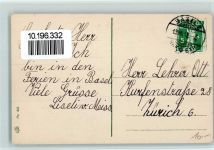 10.196.332
BASEL
Herr
Ich
bin in den
Ferien in Basel
Viele Grüsse
Liseli v. Moos
Herrn Lehrer Ott
Kurfenstrasse 28
Zürich 6.